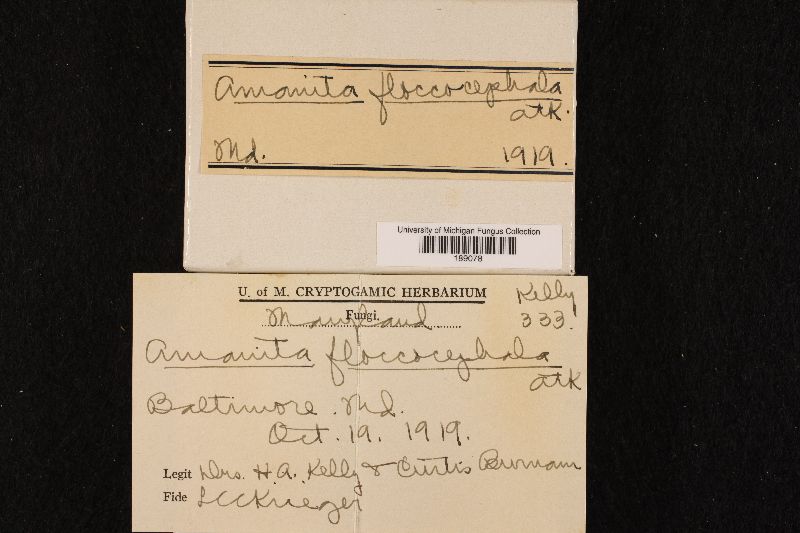 Amanita floccocephala
Atk.
Md. 1919.
University of Michigan Fungus Collection
189078
U. of M. CRYPTOGAMIC HERBARIUM
Kelly
333.
Fungi.
Maryland
Amanita floccocephala
Atk
Baltimore. Md.
Oct. 19. 1919.
Legit Drs. H. A. Kelly & Curtis Burnam
Fide L C C Krieger